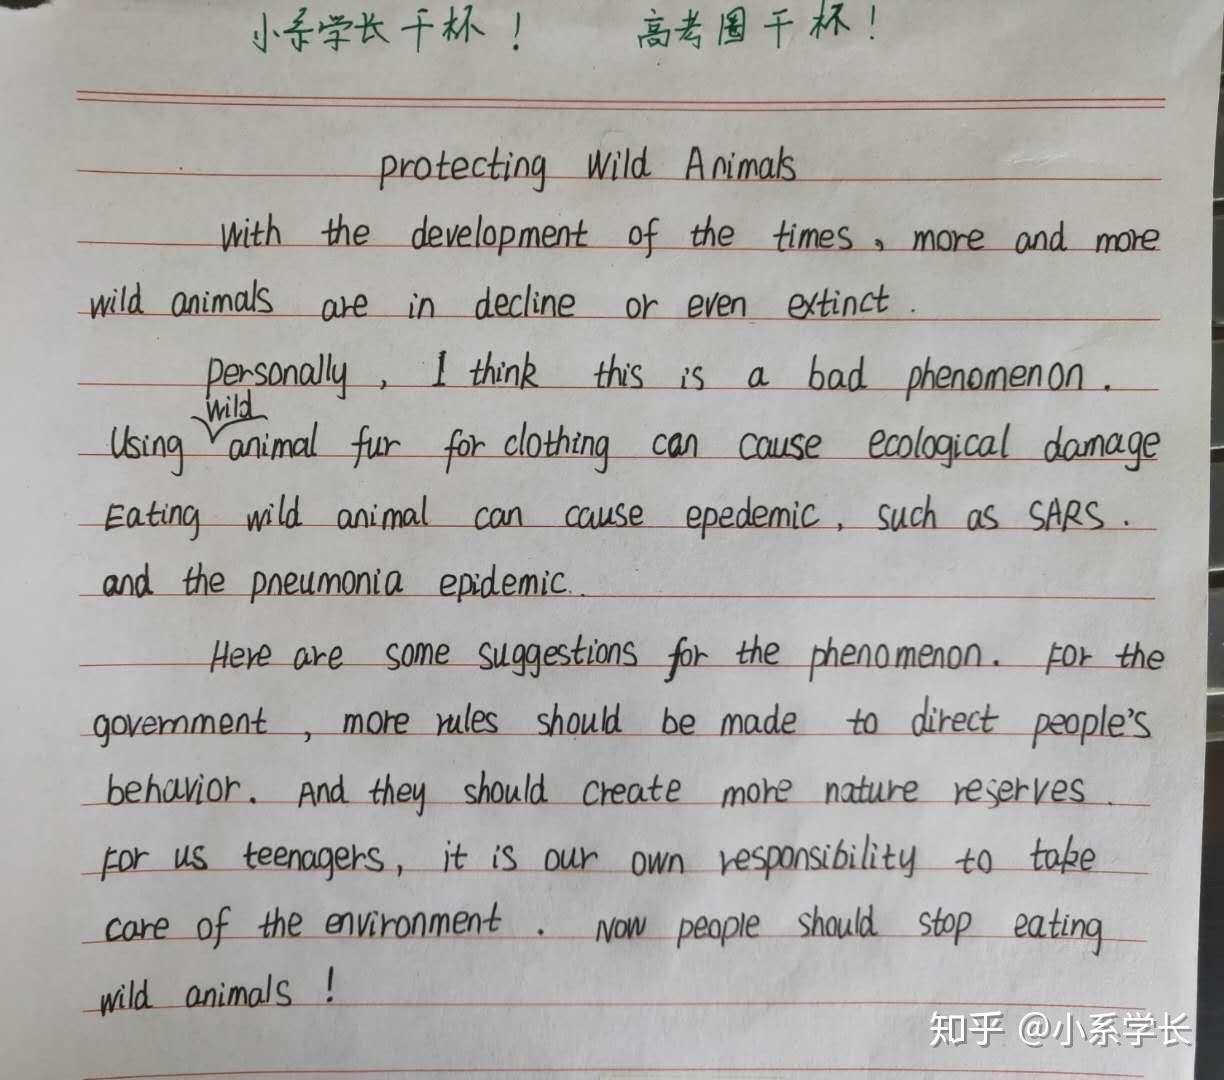 小系学长干杯！ 高考圈干杯！
protecting Wild Animals
With the development of the times, more and more
wild animals are in decline or even extinct.
Personally, I think this is a bad phenomenon.
wild
Using animal fur for clothing can cause ecological damage
Eating wild animal can cause epedemic, such as SARS.
and the pneumonia epidemic.
Here are some suggestions for the phenomenon. For the
government, more rules should be made to direct people's
behavior. And they should create more nature reserves.
For us teenagers, it is our own responsibility to take
care of the environment. Now people should stop eating
wild animals!
知乎 @小系学长